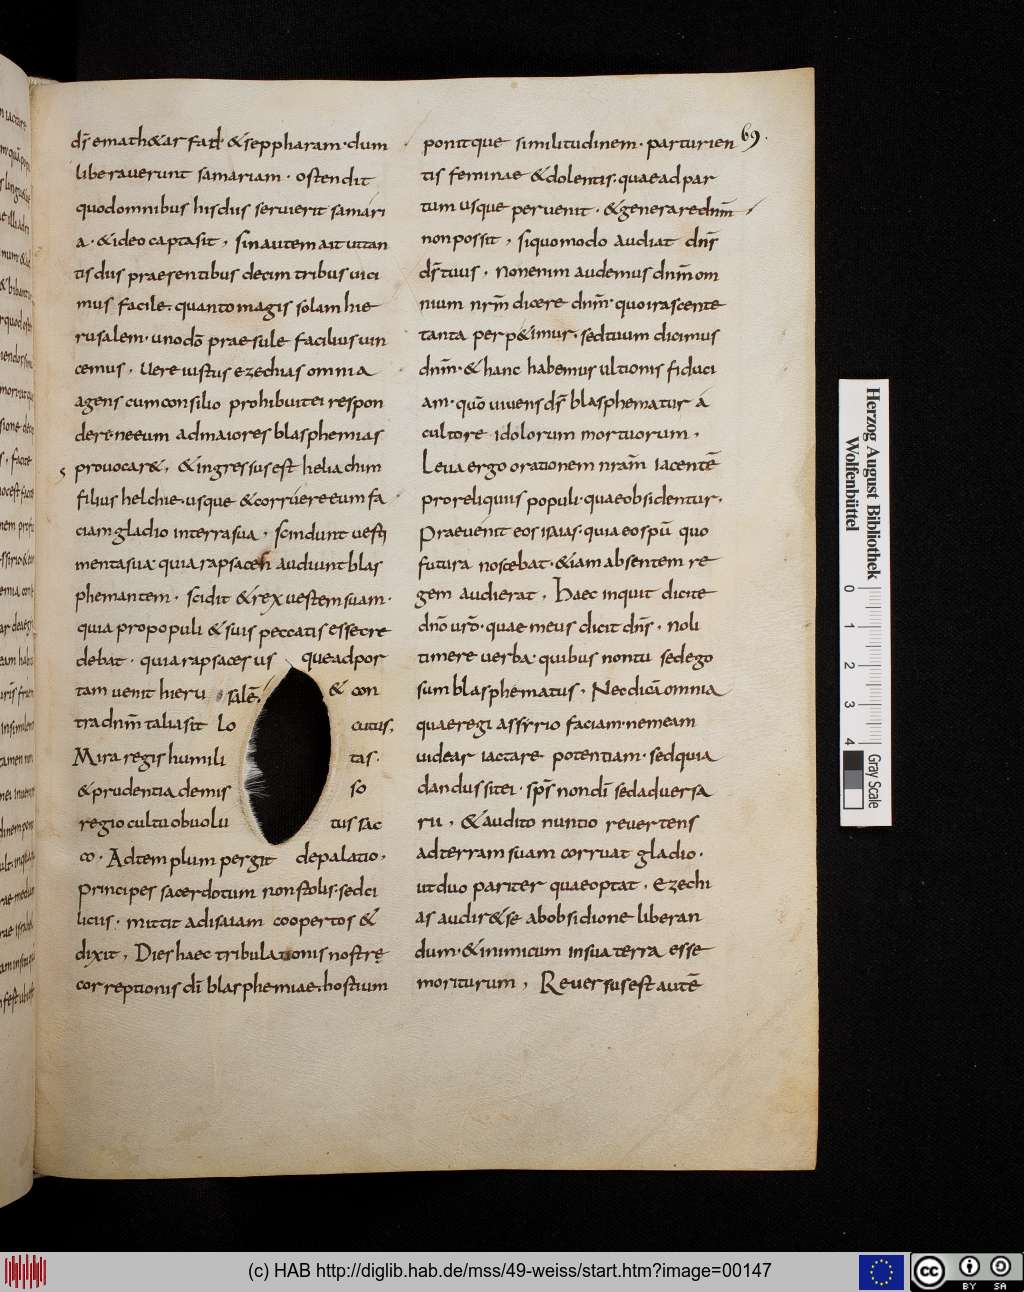 69.
ds̄ emath&arfad &seppharam·dum
liberauerunt samariam · ostendit
quodomnibus hisdiis seruierit samari
a · &ideo captasit , sinautem ait uttan
tis dus praesentibus decim tribus uici
mus facile· quantomagis solam hie
rusalem· unodō praesule facilius uin
cemus , Uere iustus ezechias omnia
agens cumconsilio prohibuitei respon
dere·neeum admaiores blasphemias
s prouocar& , &ingressusest heliachim
filius helchie·usque &corruere·eum fa
ciamgladio interrasua , scindunt uest
mentasua· quia rapsacen audiunt blas
phemantem · scidit &rex uestem suam·
quia propopuli &suis peccatis essecre
debat · quia rapsaces us queadpor
tam uenit hieru salē, & con
tradnm̄ taliasit Lo cutus,
Mira regis humili tas ·
&prudentia demis so
regio cultu obuolu tus sac
co · Adtemplum pergit depalatio,
Principes sacerdotum nonstolis·sedci
licus · mittit adisaiam coopertos &
dixit , Dies haec tribulationis nostrę
correptionis dī blasphemiae·hostium
ponitque similitudinem · parturien
tis feminae &dolentis·quaeadpar
tum usque peruenit · &generarednm̄
nonpossit , siquomodo audiat dns̄
ds̄ tuus , Nonenim audemus dnm̄ om
nium nrm̄ dicere dnm̄· quoirascente
tanta perp&imur, sedtuum dicimus
dnm̄·&hanc habemus ultionis fiduci
am· quō uiuens ds̄ blasphematur á
cultore idolorum mortuorum ,
Leua ergo orationem nram̄ iacentē
proreliquiis populi·quaeobsidentur,
Praeuenit eos isaias· quia eospū quo
futura noscebat·&iam absentem re
gem audierat , Haec inquit dicite
dnō urō· quae meus dicit dns̄ , Noli
timere uerba· quibus nontu sedego
sum blasphematus , Necdicā omnia
quaeregi assyrio faciam·nemeam
uidear iactare potentiam· sedquia
dandus sitei · sps̄ nondī sedaduersa
rii , &audito nuntio reuertens
adterram suam corruat gladio ·
utduo pariter quaeoptat , Ezechi
as audir&se abobsidione liberan
dum·&inimicum insuaterra esse
moriturum , Reuersusest autē
Herzog August Bibliothek
Wolfenbüttel
0 1 2 3 4
Gray Scale
(c) HAB http://diglib.hab.de/mss/49-weiss/start.htm?image=00147
cc BY SA